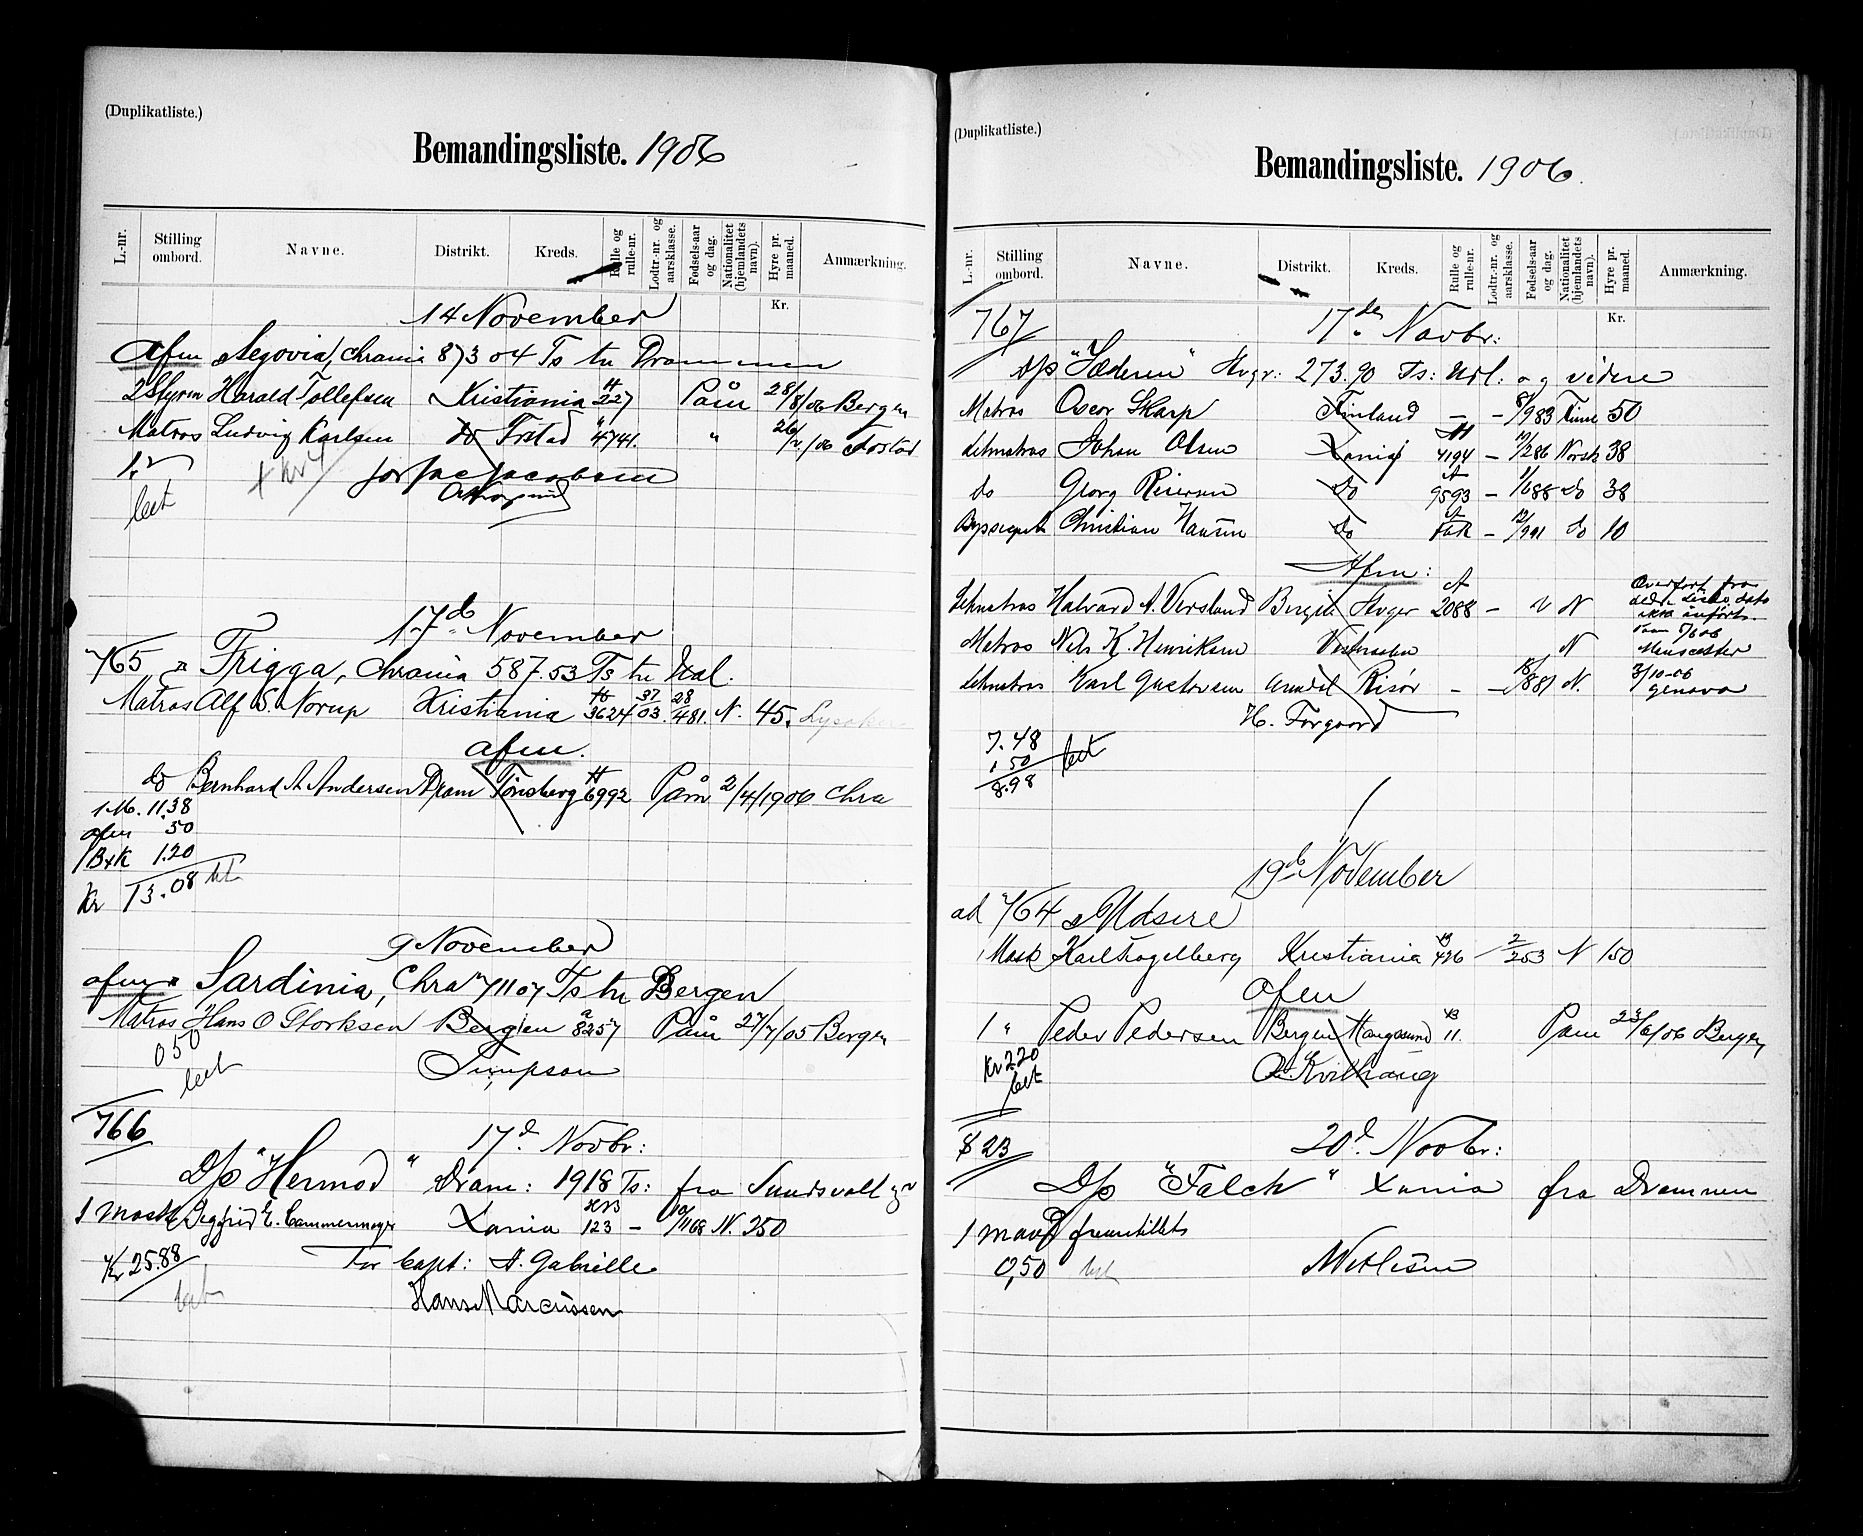 (Duplikatliste.)
Bemandingsliste. 1906
L.-nr. Stilling ombord. Navne. Distrikt. Kreds. Rulle og rulle-nr. Lodtr.-nr. og aarsklasse. Fødsels-aar og dag. Nationalitet (hjemlandets navn). Hyre pr. maaned. Anmærkning.
Kr.
14 November
Afm Segovia, Chrania 873 04 Ts tr Drammen
2 Styrm Harald Tollefsen Kristiania H 227 Påm 28/8/06 Bergen
Matros Ludvig Karlsen do Frstad " 4741. " 26/2/06 Frstad
1 kr
for Jac Jacobsen
bet
17de November
765 D Frigga, Chrania 587.53 Ts tr Ital.
Matros Alf S. Norup Kristiania H 3624 37/03. 28/481. N. 45. Lysaker
afm.
do Bernhard A Andersen Dram Tönsberg H 6992 Påm 2/4/1906 Chra
1 M. 11.38
afm 50
1 BxK 1.20
Kr 13.08 bet
9 November
afm D Sardinia, Chra 711 07 Ts tr Bergen
Matros Hans O Storksen Bergen a 8257 Påm 27/7/05 Bergen
050
bet
Simpson
766
17d Novbr:
D/s "Hermod" Dram: 1918 Ts: fra Sundsvall
1 mask Segfried E. Cammermeyer Xania 123 – 10/1168 N. 250
Kr 25.88
For Capt: A. Gabrielle
bet
Hans Marcussen
(Duplikatliste.)
Bemandingsliste. 1906.
L.-nr. Stilling ombord. Navne. Distrikt. Kreds. Rulle og rulle-nr. Lodtr.-nr. og aarsklasse. Fødsels-aar og dag. Nationalitet (hjemlandets navn). Hyre pr. maaned. Anmærkning.
Kr.
767
17de Novbr:
D/s "Jæderen" Hvgr: 273.90 Ts: Udl: og videre
Matros Oscar Skarp Finland – – 8/983 Finne 50
Letmatros Johan Olsen Xania H 4194 – 19/286 Norsk 38
do Georg Riiersen Do A 9593 – 1/688 do 38
Byssegut Christian Hansen do A – 12/991 do 10
Afm:
Letmatros Halvard A. Versland Bergen Hvger A 2088 – N
Overført fra
Matros Nils K. Henriksen N
Paam 7/6 06
Letmatros Karl Gustavsen Arendal Risør – – 15/881 N.
3/10-06
Genova
H. Torgaard
7.48
1.50
8.98
bet
19de November
ad 764 D Udsire
1 Mask Karl Fogelberg Kristiania 426 – 2/253 N 150
afm
1 " Peder Pedersen Bergen Haugesund 11. Pam 23/6/06 Bergen
Kr 2.20
bet
Kvilhaug
$23
20d Novbr:
D/s "Falch" Xania fra Drammen
1 mand fremstillet
0,50 bet